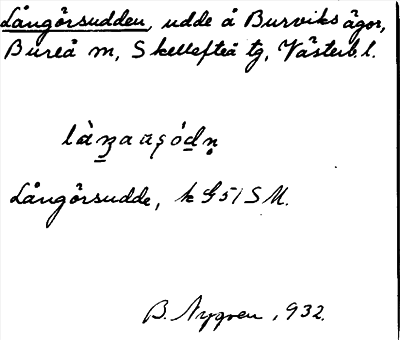 Långörsudden, udde å Burviks ägor,
Bureå m, Skellefteå tg, Västerb. l.
Långörsudde, k G51 SM.
B. Nygren, 932.